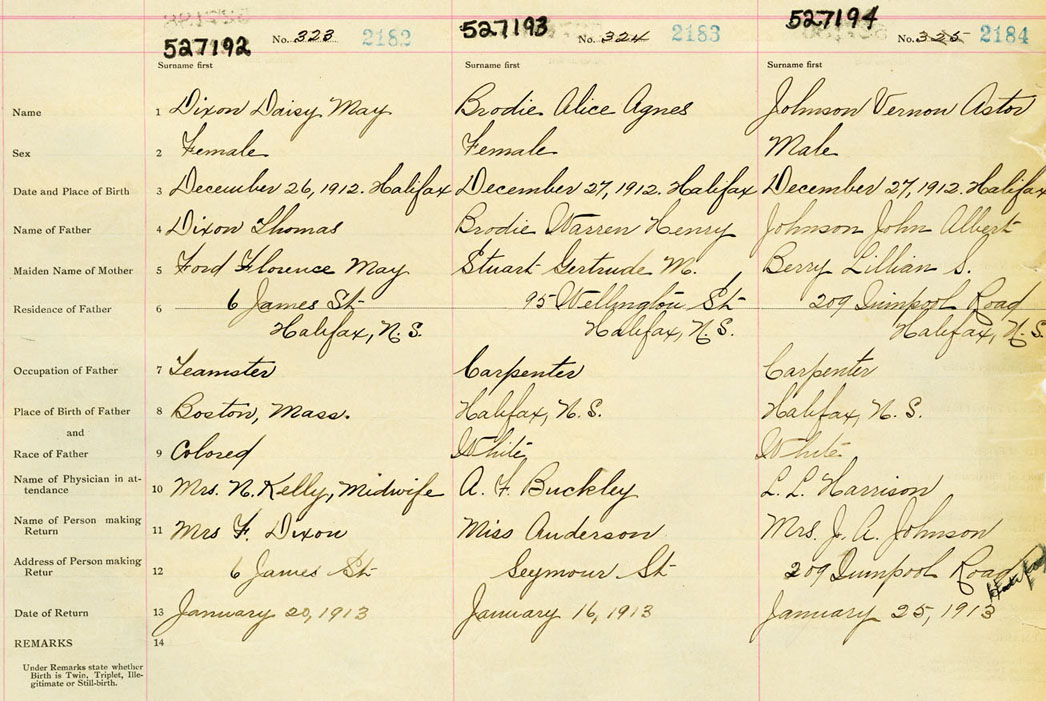 527192 No. 323 2182 527193 No. 324 2183 527194 No. 325 2184
Surname first Surname first Surname first
Name 1 Dixon Daisy May Brodie Alice Agnes Johnson Vernon Astor
Sex 2 Female Female Male
Date and Place of Birth 3 December 26, 1912. Halifax December 27, 1912. Halifax December 27, 1912. Halifax
Name of Father 4 Dixon Thomas Brodie Warren Henry Johnson John Albert
Maiden Name of Mother 5 Ford Florence May Stuart Gertrude M. Berry Lillian S.
Residence of Father 6 6 James St 95 Wellington St 209 Road
Halifax, N.S. Halifax, N.S. Halifax, N.S.
Occupation of Father 7 Teamster Carpenter Carpenter
Place of Birth of Father 8 Boston, Mass. Halifax, N.S. Halifax, N.S.
and
Race of Father 9 Colored White White
Name of Physician in at-
tendance 10 Mrs. N. Kelly, Midwife A. F. Buckley L. L. Harrison
Name of Person making
Return 11 Mrs F. Dixon Miss Anderson Mrs. J. A. Johnson
Address of Person making
Retur 12 6 James St Seymour St 209 Road
Date of Return 13 January 20, 1913 January 16, 1913 January 25, 1913
REMARKS 14
Under Remarks state whether
Birth is Twin, Triplet, Ille-
gitimate or Still-birth.